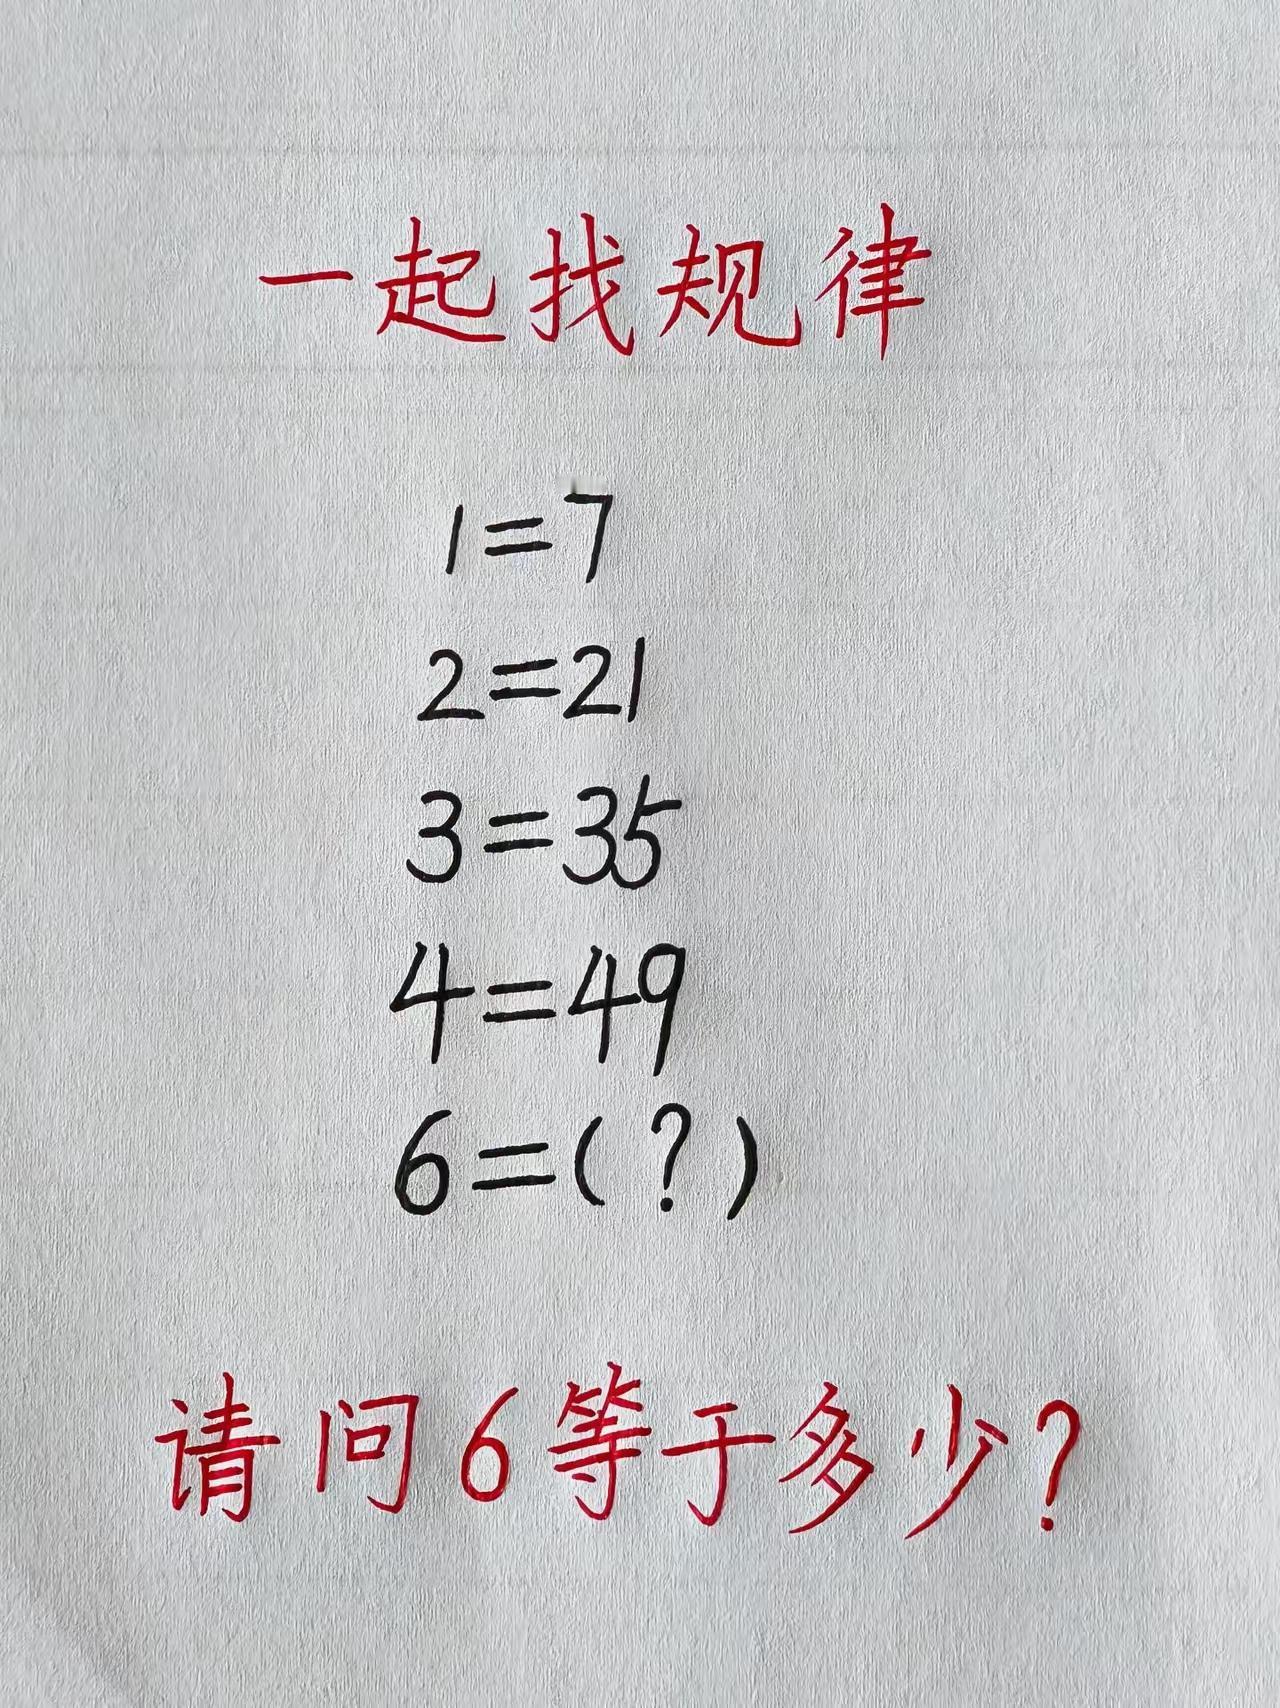 一起找规律
1=7
2=21
3=35
4=49
6=(?)
请问6等于多少?